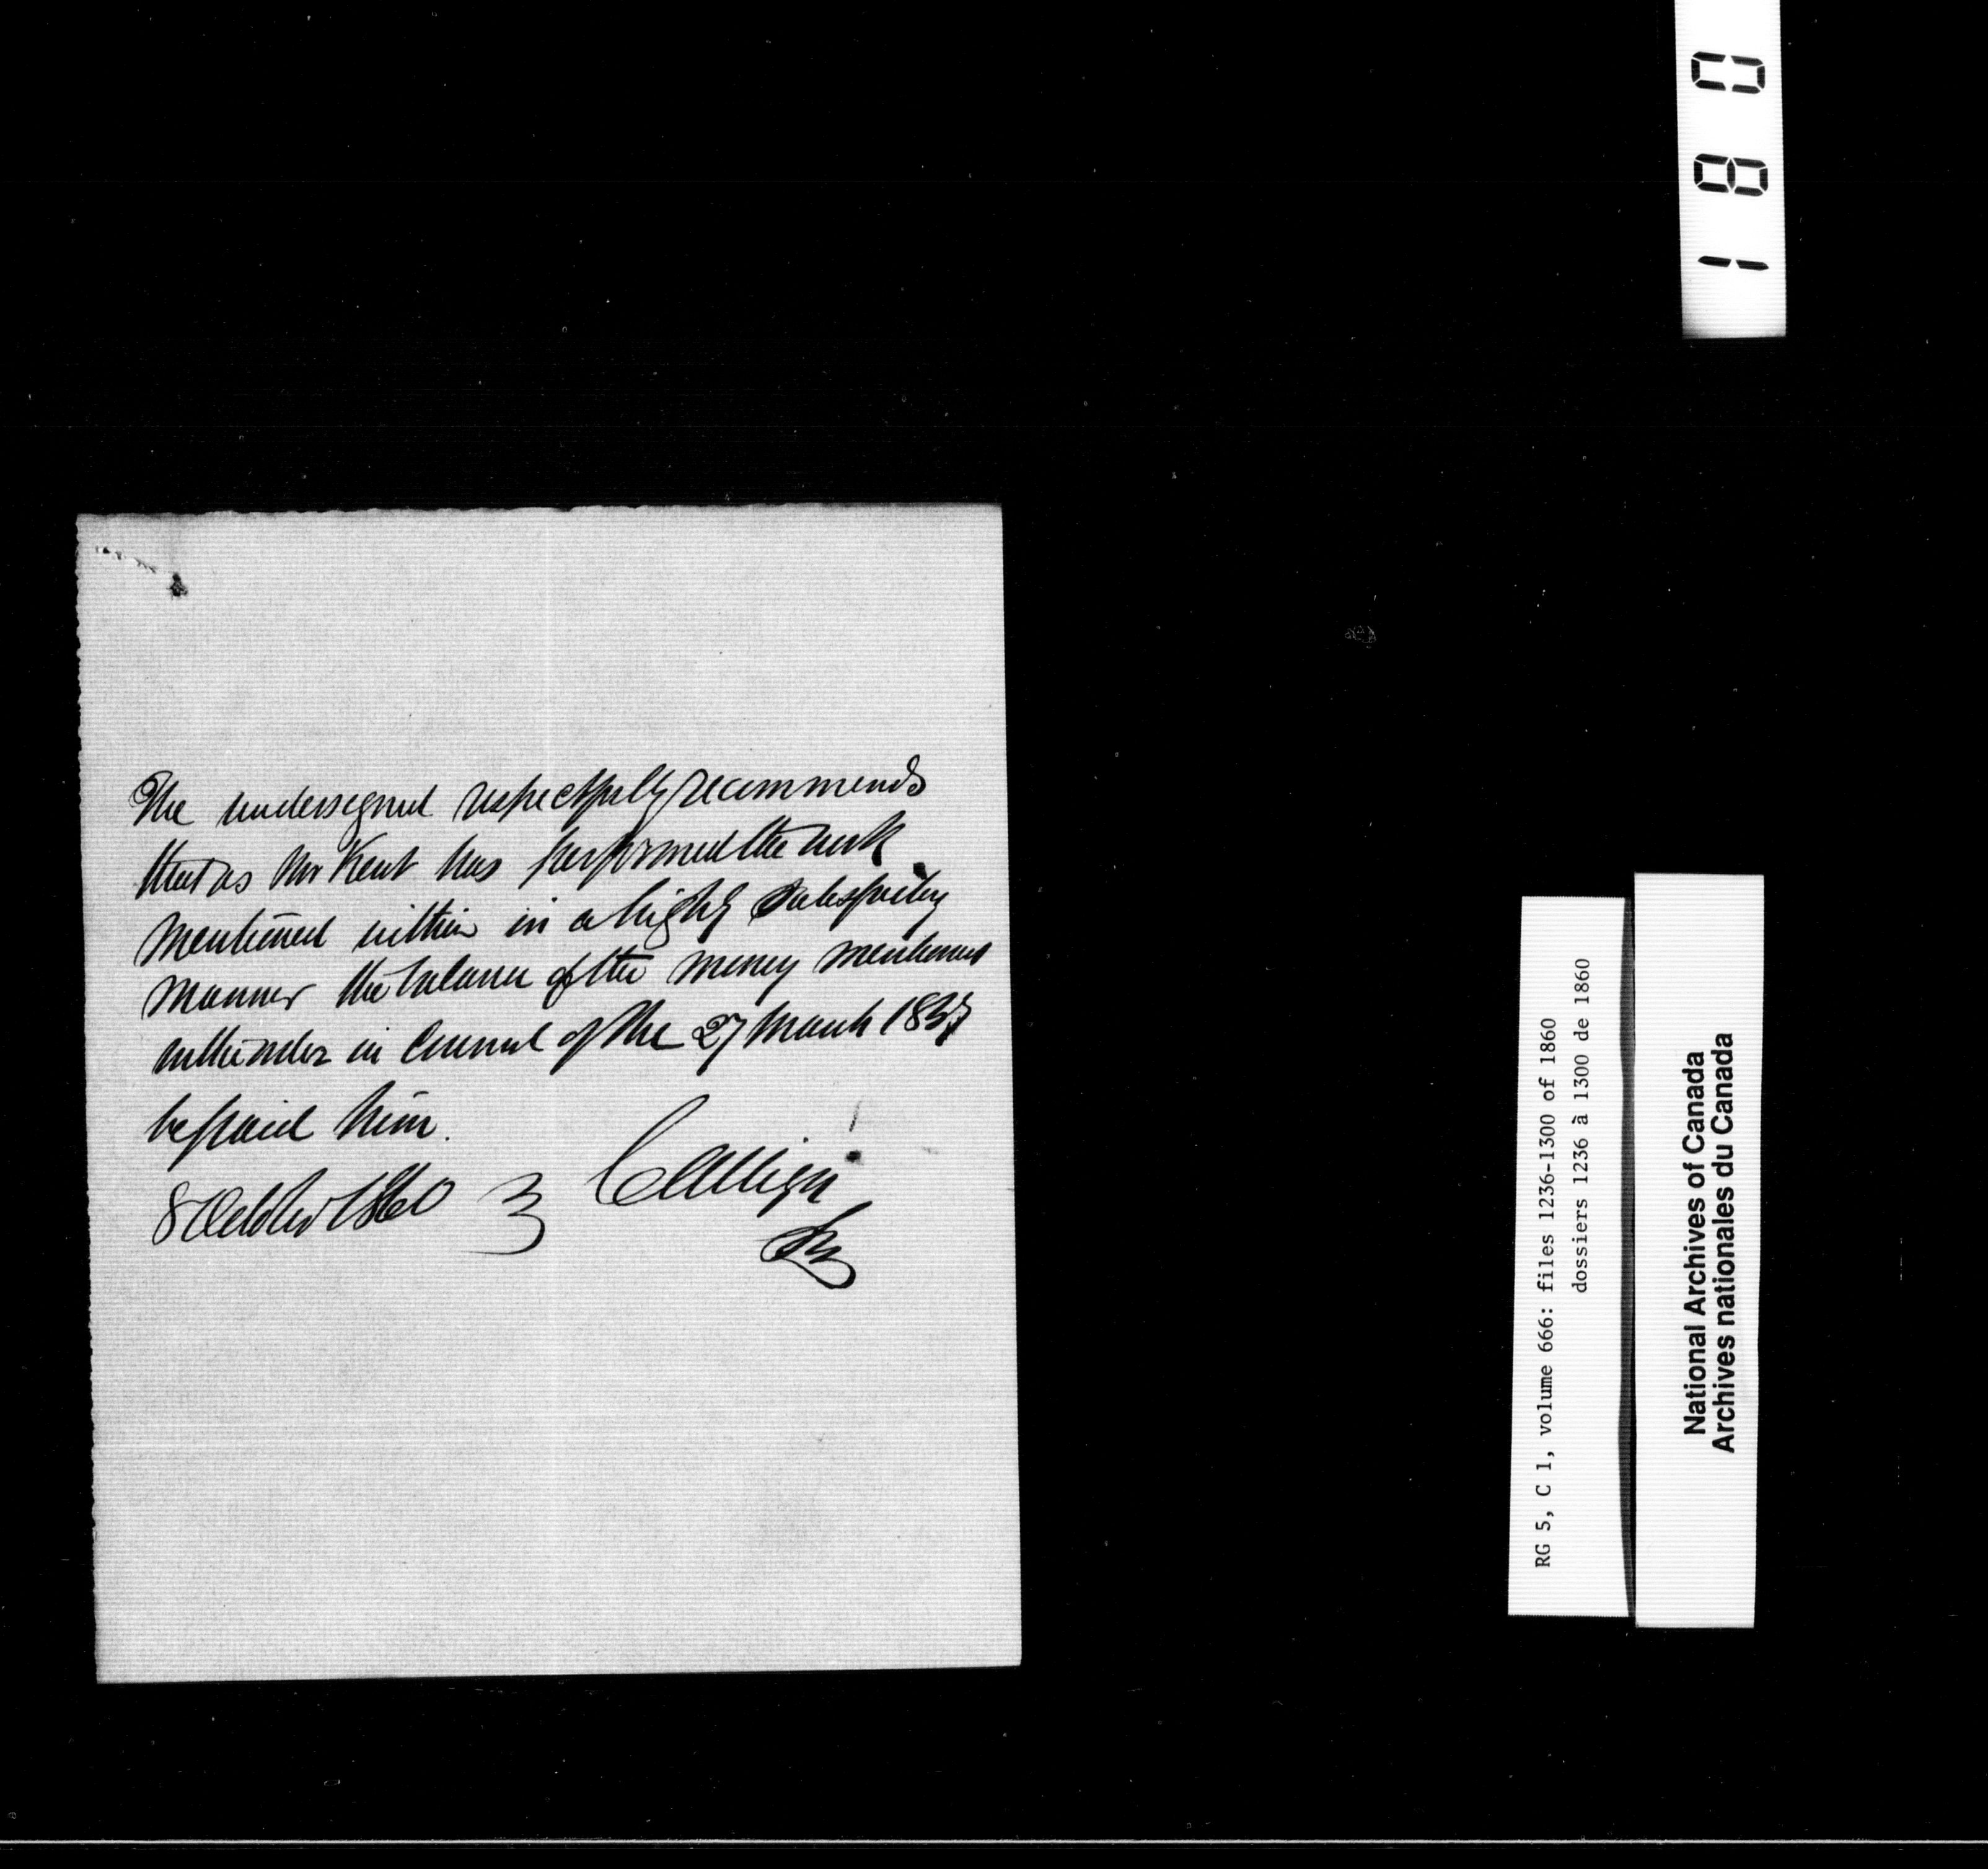 The undersigned respectfully recommends
that as Mr Kent has performed the work
mentioned within in a highly satisfactory
manner the balance of the money mentioned
in the order in Council of the 27 March 1857
be paid him.
8 October 1860
180
RG 5, C 1, volume 666: files 1236-1300 of 1860
dossiers 1236 à 1300 de 1860
National Archives of Canada
Archives nationales du Canada